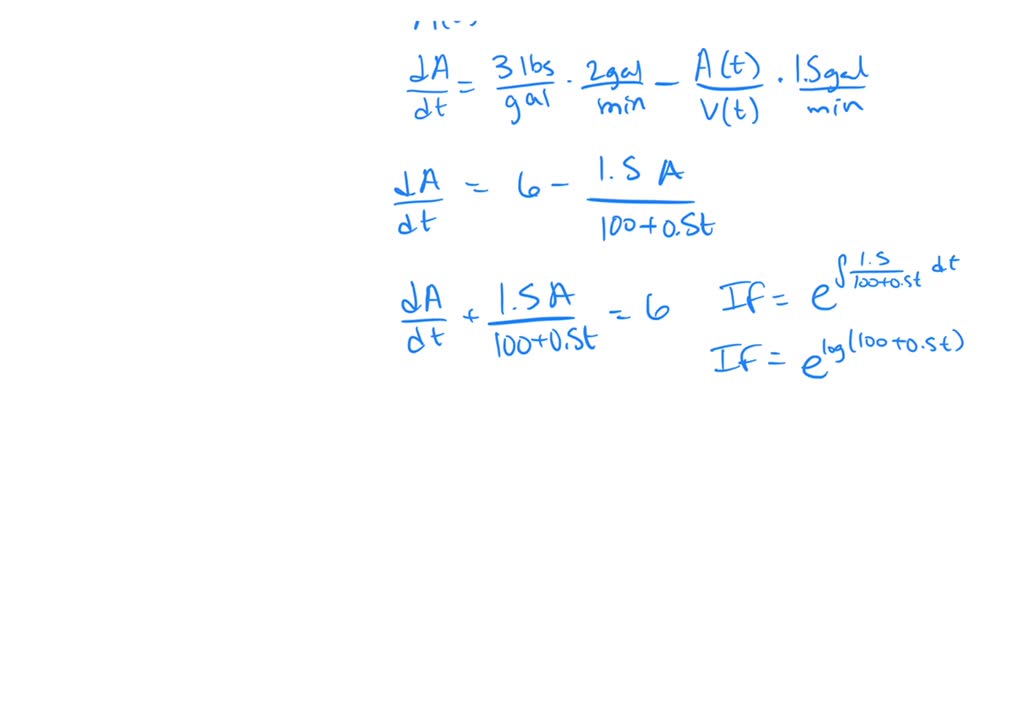 dA/dt = 3 lbs/gal · 2 gal/min − A(t)/V(t) · 1.5 gal/min
dA/dt = 6 − 1.5 A/100+0.5t
dA/dt + 1.5 A/100+0.5t = 6 If = e^∫ 1.5/100+0.5t dt
If = e^log(100+0.5t)